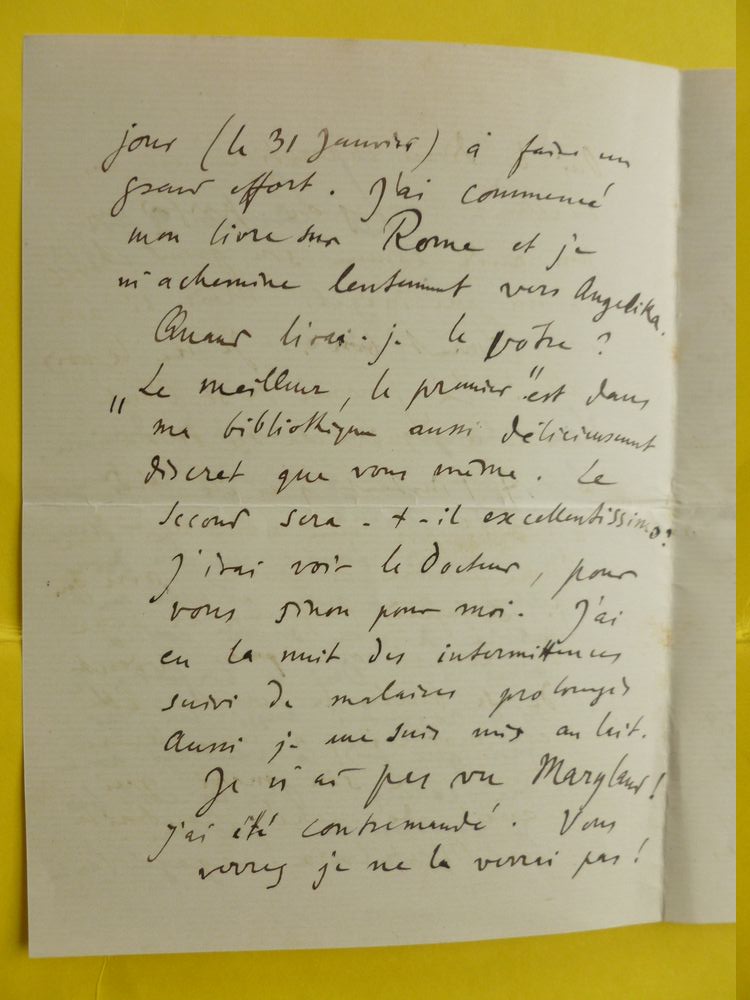 jour (le 31 Janvier) à faire un
grand effort. J'ai commencé
mon livre sur Rome et je
m'achemine lentement vers Angelika.
Quand lirai-je le vôtre ?
"Le meilleur, le premier" est dans
ma bibliothèque aussi délicieusement
discret que vous même. Le
second sera-t-il excellentissimo?
J'irai voir le Docteur, pour
vous sinon pour moi. J'ai
eu la nuit des intermittences
suivi de malaises prolongés
Aussi je me suis mis au lait.
Je n'ai pas vu Maryland!
j'ai été contremandé. Vous
verrez je ne la verrai pas!